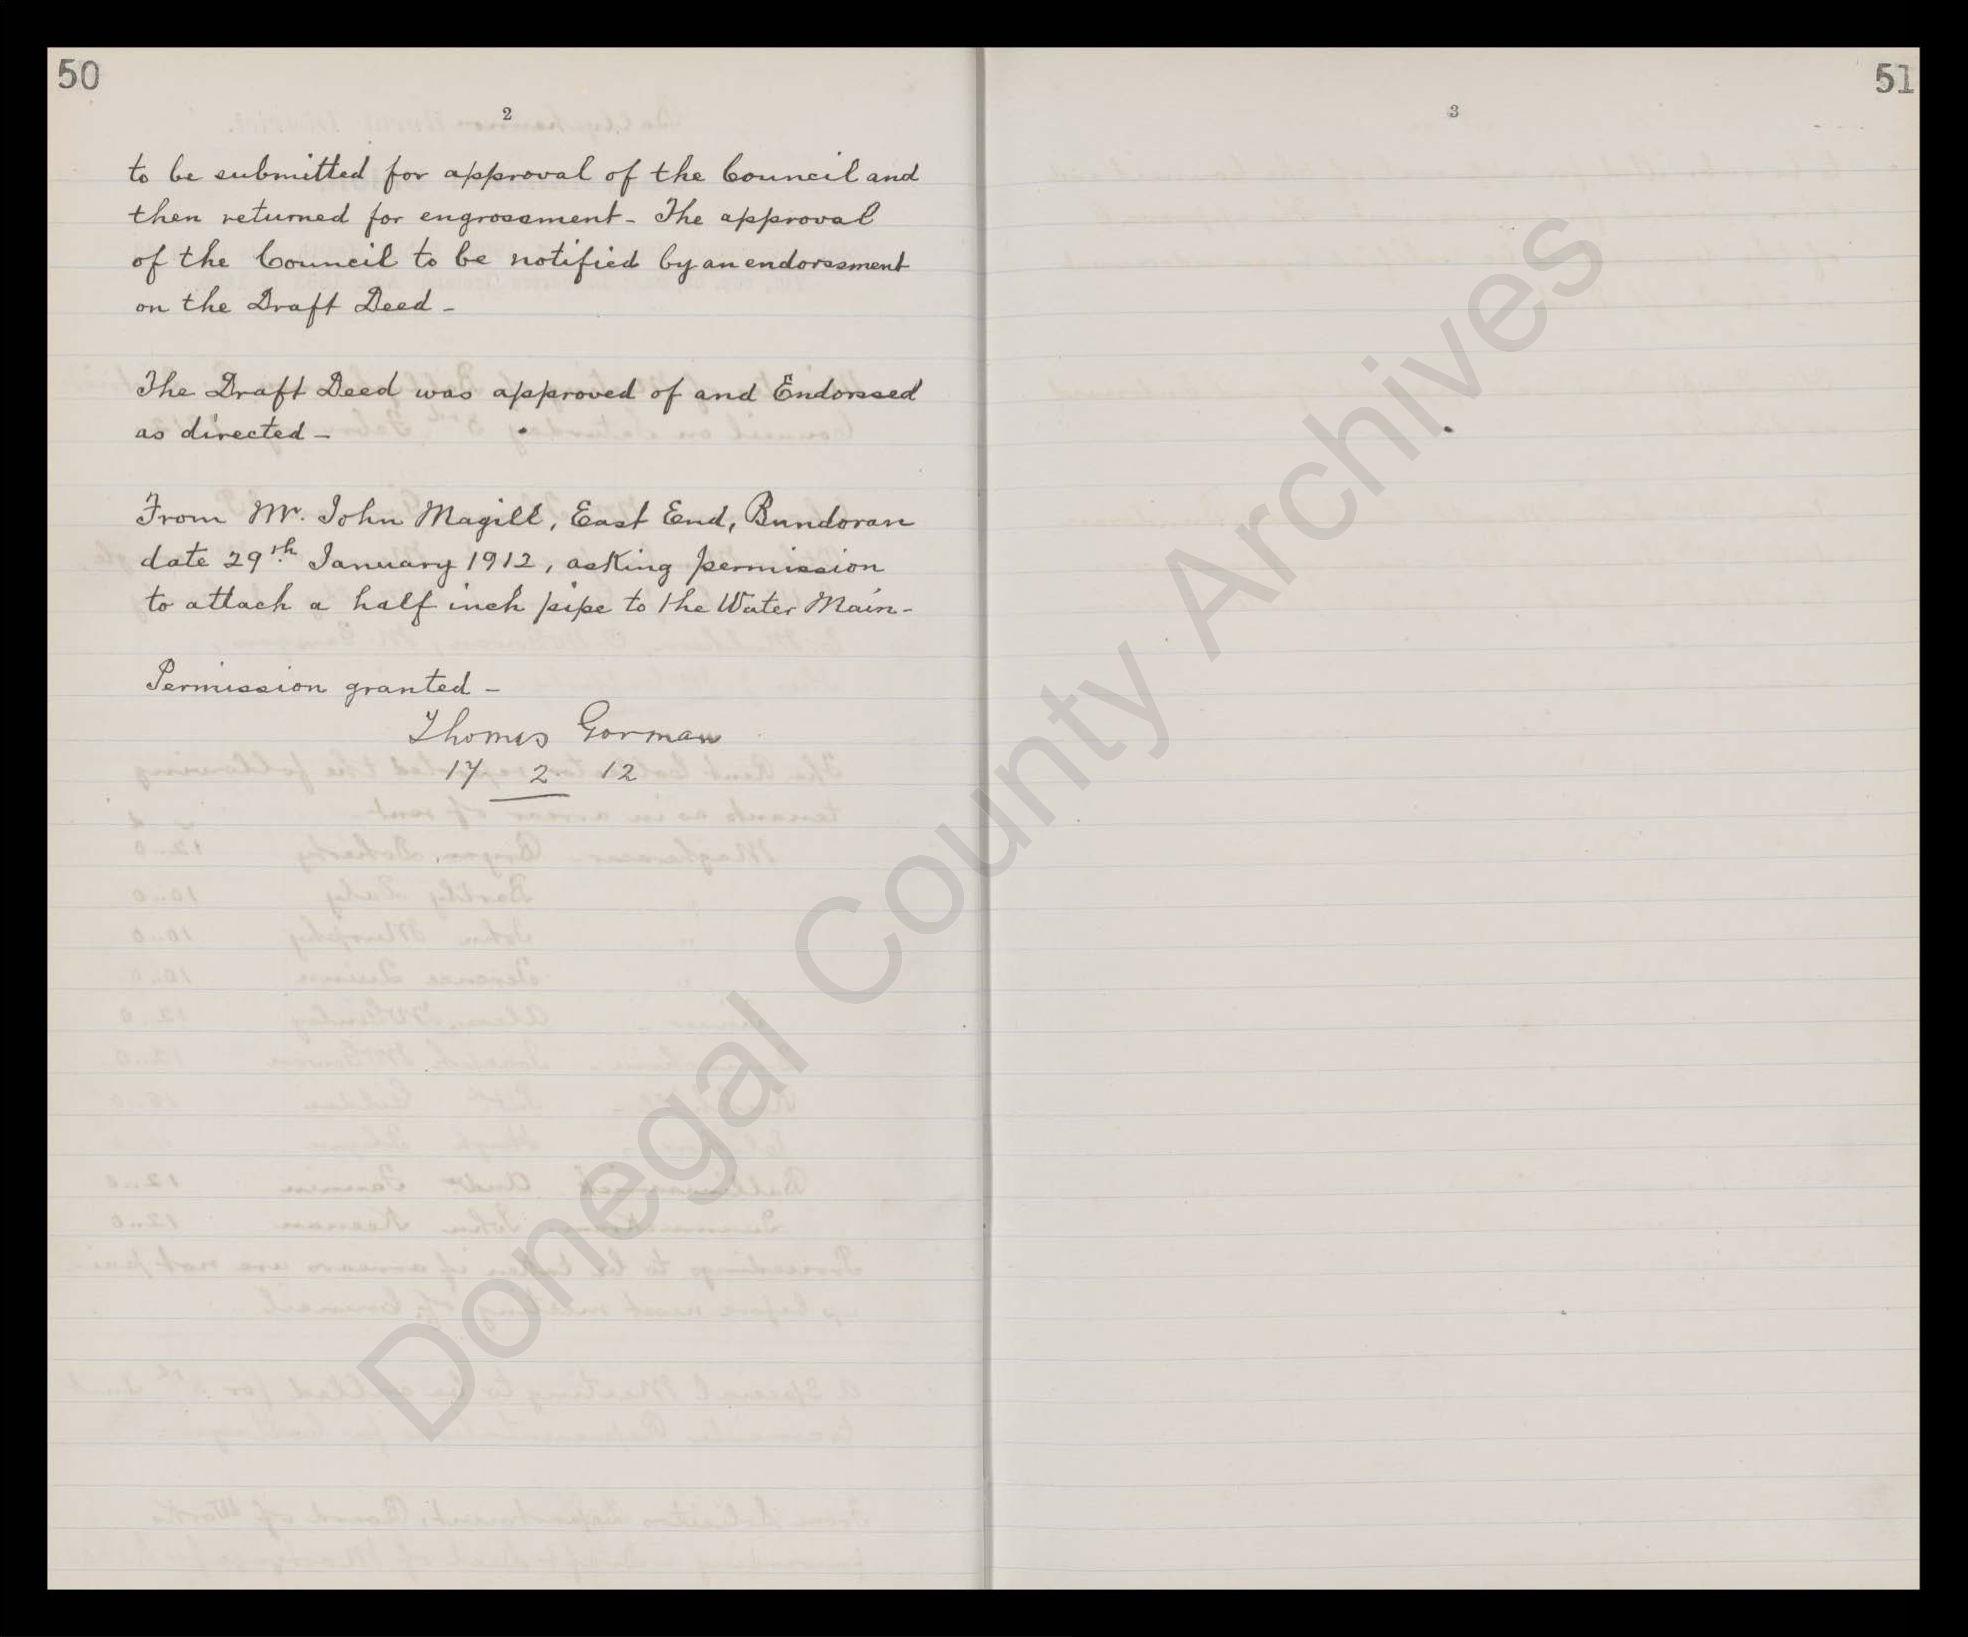 50
2
to be submitted for approval of the Council and
then returned for engrossment - The approval
of the Council to be notified by an endorsement
on the Draft Deed -
The Draft Deed was approved of and Endorsed
as directed -
From Mr. John Magill, East End, Bundoran
date 29th January 1912, asking permission
to attach a half inch pipe to the Water Main -
Permission granted -
Thomas Gorman
17 2 12
51
3
Donegal County Archives